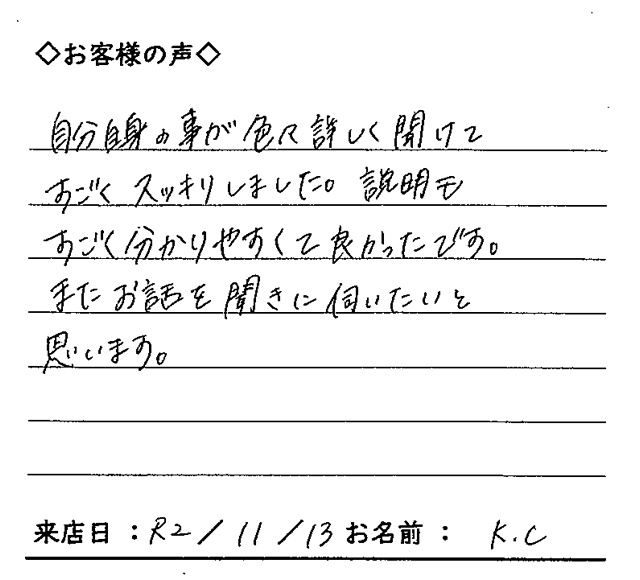 ◇お客様の声◇
自分自身の事が色々詳しく聞けて
すごくスッキリしました。説明も
すごく分かりやすくて良かったです。
またお話を聞きに伺いたいと
思います。
来店日：R2/11/13 お名前： K.C